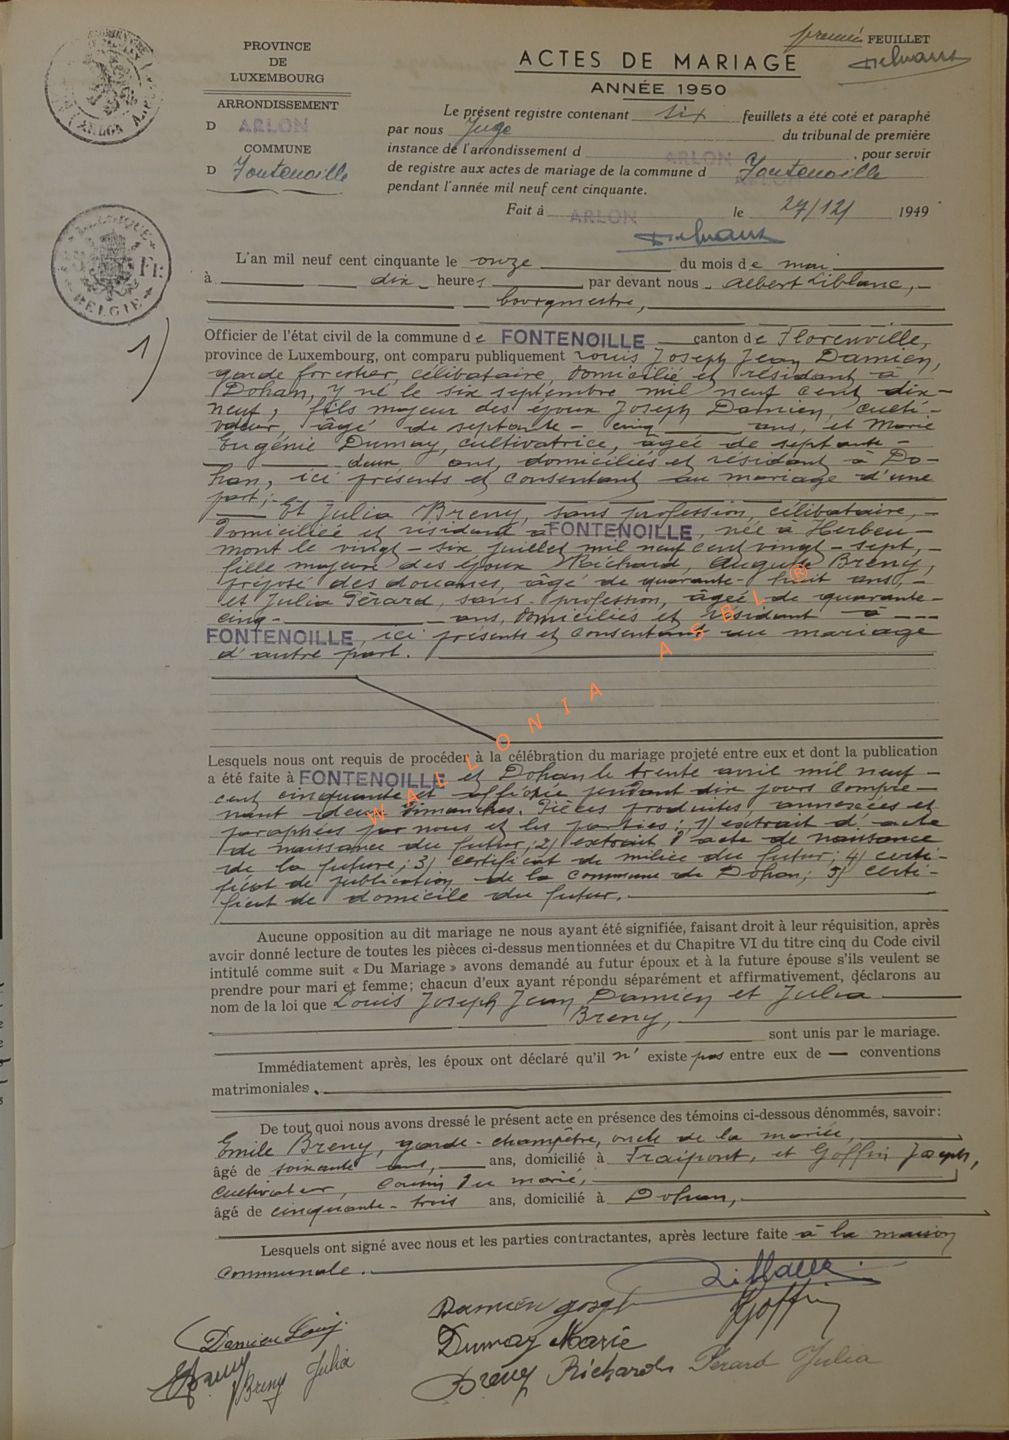 premier FEUILLET
PROVINCE
DE
LUXEMBOURG
ARRONDISSEMENT
D ARLON
COMMUNE
D Fontenoille
ACTES DE MARIAGE
ANNÉE 1950
Le présent registre contenant six feuillets a été coté et paraphé
par nous Juge du tribunal de première
instance de l'arrondissement d ARLON, pour servir
de registre aux actes de mariage de la commune d Fontenoille
pendant l'année mil neuf cent cinquante.
Fait à ARLON le 27/12/ 1949
BELGIQUE
Fr
BELGIE
1)
L'an mil neuf cent cinquante le onze du mois de mai
à dix heures par devant nous Albert Liblanc,
bourgmestre,
Officier de l'état civil de la commune de FONTENOILLE canton de Florenville,
province de Luxembourg, ont comparu publiquement Louis Joseph Jean Damien,
garde forestier, célibataire, domicilié et résidant à
Dohan, y né le six septembre mil neuf cent dix-
neuf, fils majeur des époux Joseph Damien, culti-
vateur, âgé de septante-cinq ans, et Marie
Eugénie Dumay, cultivatrice, âgée de septante-
deux ans, domiciliés et résidant à Do-
han, ici présents et consentant au mariage d'une
part;
Et Julia Breny, sans profession, célibataire,
domiciliée et résidant à FONTENOILLE, née à Herbeu-
mont le vingt-six juillet mil neuf cent vingt-sept,
fille majeure des époux Richard, Auguste Breny,
préposé des douanes, âgé de quarante-huit ans,
et Julia Pérard, sans profession, âgée de quarante-
cinq ans, domiciliés et résidant à
FONTENOILLE, ici présents et consentant au mariage
d'autre part.
WALLONIA ASBL ®
Lesquels nous ont requis de procéder à la célébration du mariage projeté entre eux et dont la publication
a été faite à FONTENOILLE et Dohan le trente avril mil neuf
cent cinquante et affichée pendant dix jours compre-
nant deux dimanches. Pièces produites annexées et
paraphées par nous et les parties: 1) extrait d'acte
de naissance du futur; 2) extrait d'acte de naissance
de la future; 3) certificat de milice du futur; 4) certi-
ficat de publication de la commune de Dohan; 5) certi-
ficat de domicile du futur.
Aucune opposition au dit mariage ne nous ayant été signifiée, faisant droit à leur réquisition, après
avoir donné lecture de toutes les pièces ci-dessus mentionnées et du Chapitre VI du titre cinq du Code civil
intitulé comme suit « Du Mariage » avons demandé au futur époux et à la future épouse s'ils veulent se
prendre pour mari et femme; chacun d'eux ayant répondu séparément et affirmativement, déclarons au
nom de la loi que Louis Joseph Jean Damien et Julia
Breny,
sont unis par le mariage.
Immédiatement après, les époux ont déclaré qu'il n'existe pas entre eux de — conventions
matrimoniales.
De tout quoi nous avons dressé le présent acte en présence des témoins ci-dessous dénommés, savoir:
Emile Breny, garde-champêtre, oncle de la mariée,
âgé de soixante ans, ans, domicilié à Fraipont, et Goffin Joseph,
cultivateur, cousin du marié,
âgé de cinquante-trois ans, domicilié à Dohan,
Lesquels ont signé avec nous et les parties contractantes, après lecture faite à la maison
communale.
Damien Joseph
Goffin
Damien Louis
Dumay Marie
Breny
Breny Julia
Breny Richard
Pérard Julia